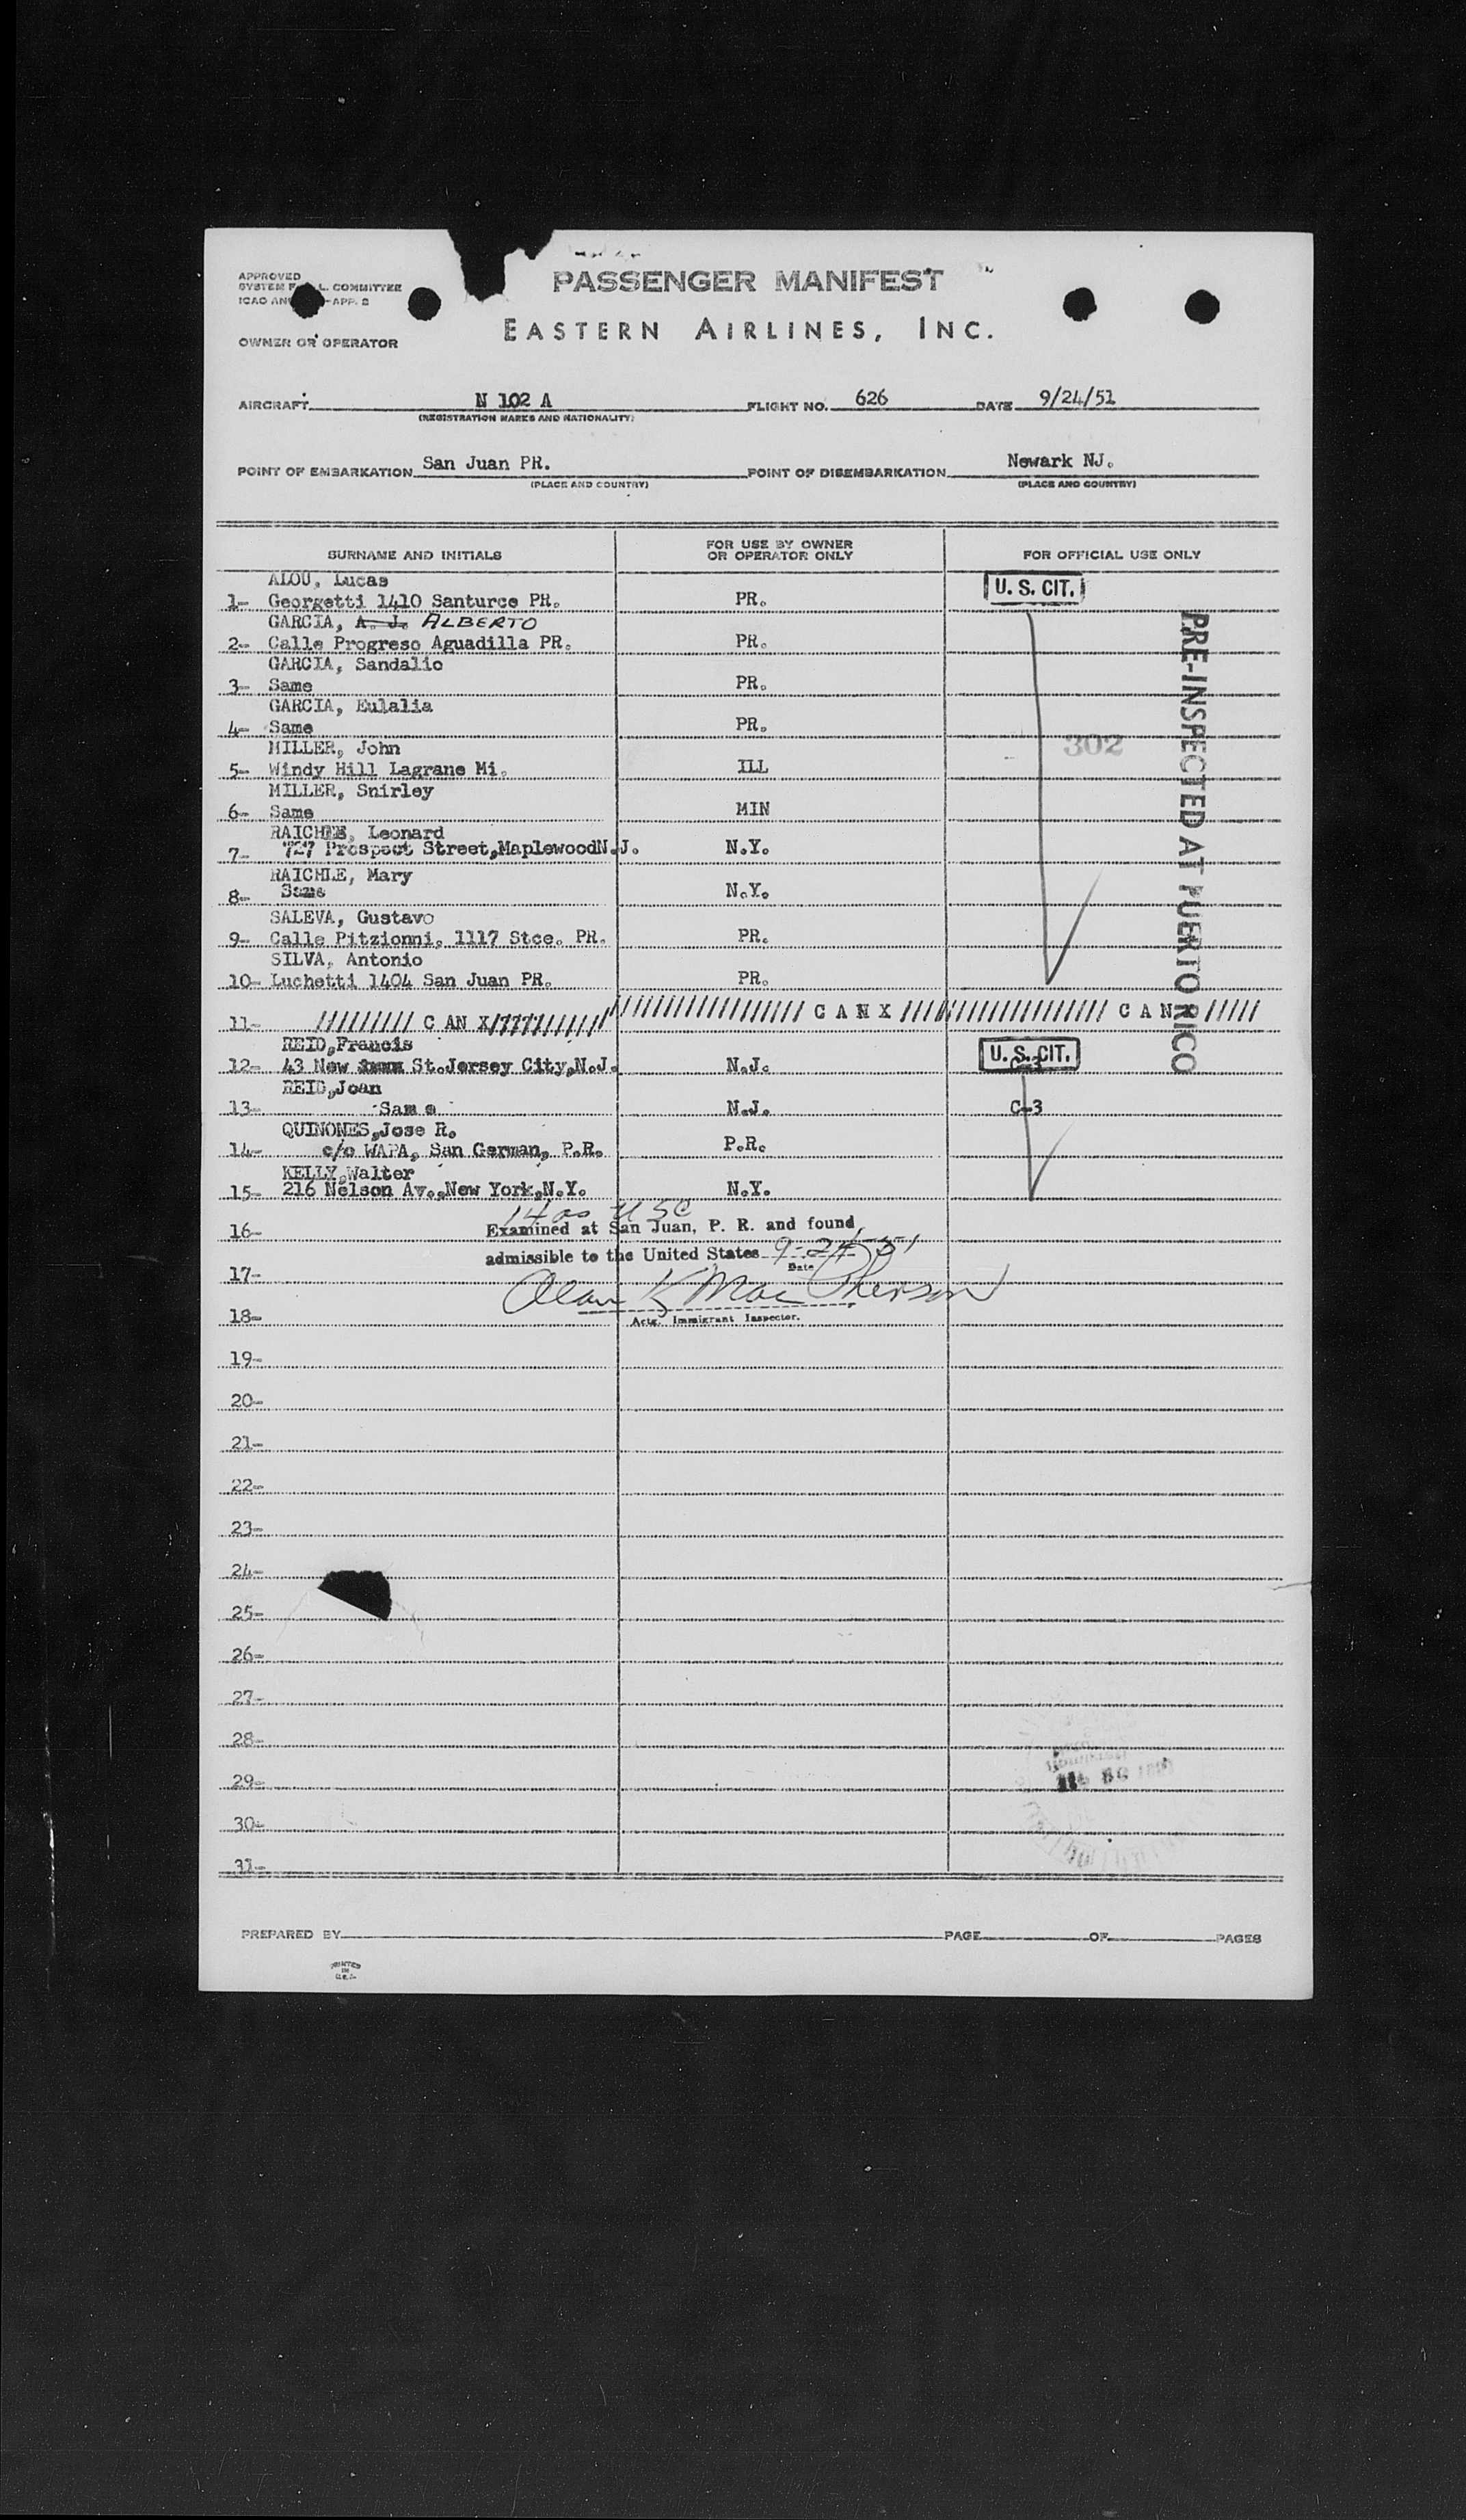 APPROVED
SYSTEM F L. COMMITTEE
ICAO AN -APP. 2
PASSENGER MANIFEST
EASTERN AIRLINES, INC.
OWNER OR OPERATOR
AIRCRAFT N 102 A FLIGHT NO. 626 DATE 9/24/51
(REGISTRATION MARKS AND NATIONALITY)
POINT OF EMBARKATION San Juan PR. POINT OF DISEMBARKATION Newark NJ.
(PLACE AND COUNTRY) (PLACE AND COUNTRY)
SURNAME AND INITIALS FOR USE BY OWNER OR OPERATOR ONLY FOR OFFICIAL USE ONLY
ALOU, Lucas
1- Georgetti 1410 Santurce PR. PR. U. S. CIT.
GARCIA, A. J. ALBERTO
2- Calle Progreso Aguadilla PR. PR.
GARCIA, Sandalio
3- Same PR.
GARCIA, Eulalia
4- Same PR.
302
MILLER, John
5- Windy Hill Lagrane Mi. ILL
MILLER, Snirley
6- Same MIN
RAICHLE, Leonard
7- 727 Prospect Street,MaplewoodN.J. N.Y.
RAICHLE, Mary
8- Same N.Y.
SALEVA, Gustavo
9- Calle Pitzionni, 1117 Stce. PR. PR.
SILVA, Antonio
10- Luchetti 1404 San Juan PR. PR.
PRE-INSPECTED AT PUERTO RICO
11- ///////// C AN X/////////// ///////////////// C A N X ///////////////////// C A N /////
REID,Francis
12- 43 New St.Jersey City,N.J. N.J. U. S. CIT.
REID,Joan
13- Same N.J. C-3
QUINONES,Jose R.
14- c/o WAPA, San German, P.R. P.R.
KELLY,Walter
15- 216 Nelson Av.,New York,N.Y. N.Y.
14 as USC
16- Examined at San Juan, P. R. and found
admissible to the United States 9-24-51
Date
17- Alan K MacPherson
18- Actg. Immigrant Inspector.
19-
20-
21-
22-
23-
24-
25-
26-
27-
28-
29-
30-
31-
PREPARED BY PAGE OF PAGES
PRINTED
IN
U.S.A.